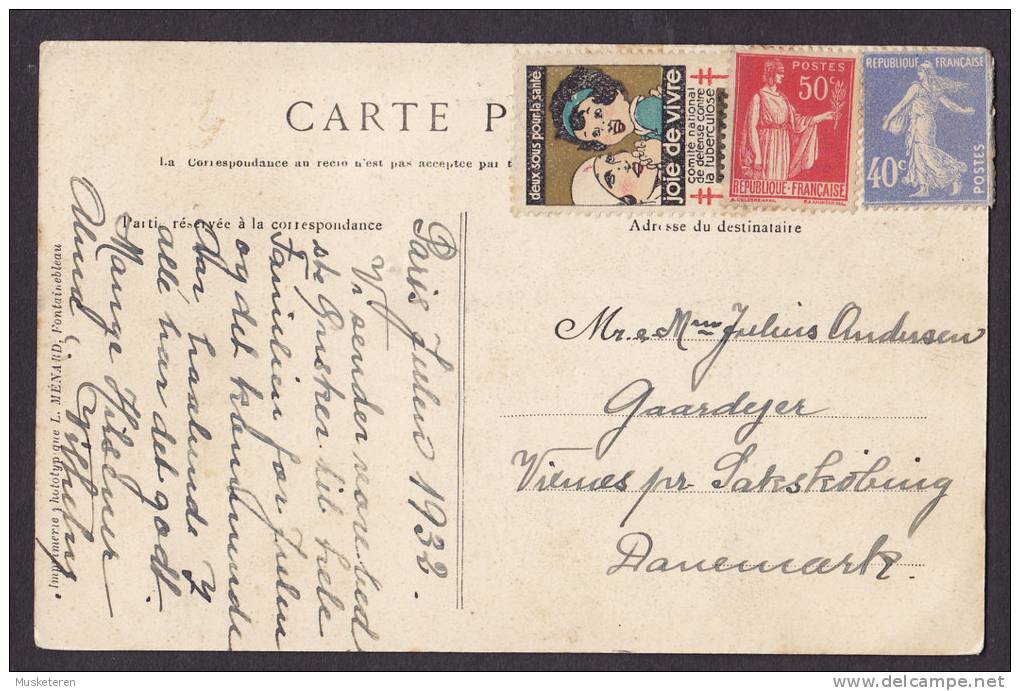 CARTE P
La Correspondance au recto n'est pas acceptée par t
Partie réservée à la correspondance
Adresse du destinataire
deux sous pour la santé
joie de vivre
comité national
de défense contre
la tuberculose
POSTES
50c
REPUBLIQUE-FRANÇAISE
REPUBLIQUE FRANÇAISE
40c
POSTES
Paris Julen 1932.
Vi sender vore bed
ste Ønsker til hele
Familien for Julen
og det kommende
Aar haabende I
alle har det godt.
Mange Hilsner
Mr. & Mrs Julius Andersen
Gaardejer
Vienes pr. Sakskøbing
Danemark.
Imprimerie phototypique L. MÉNARD, Fontainebleau
Musketeren
delcampe.net